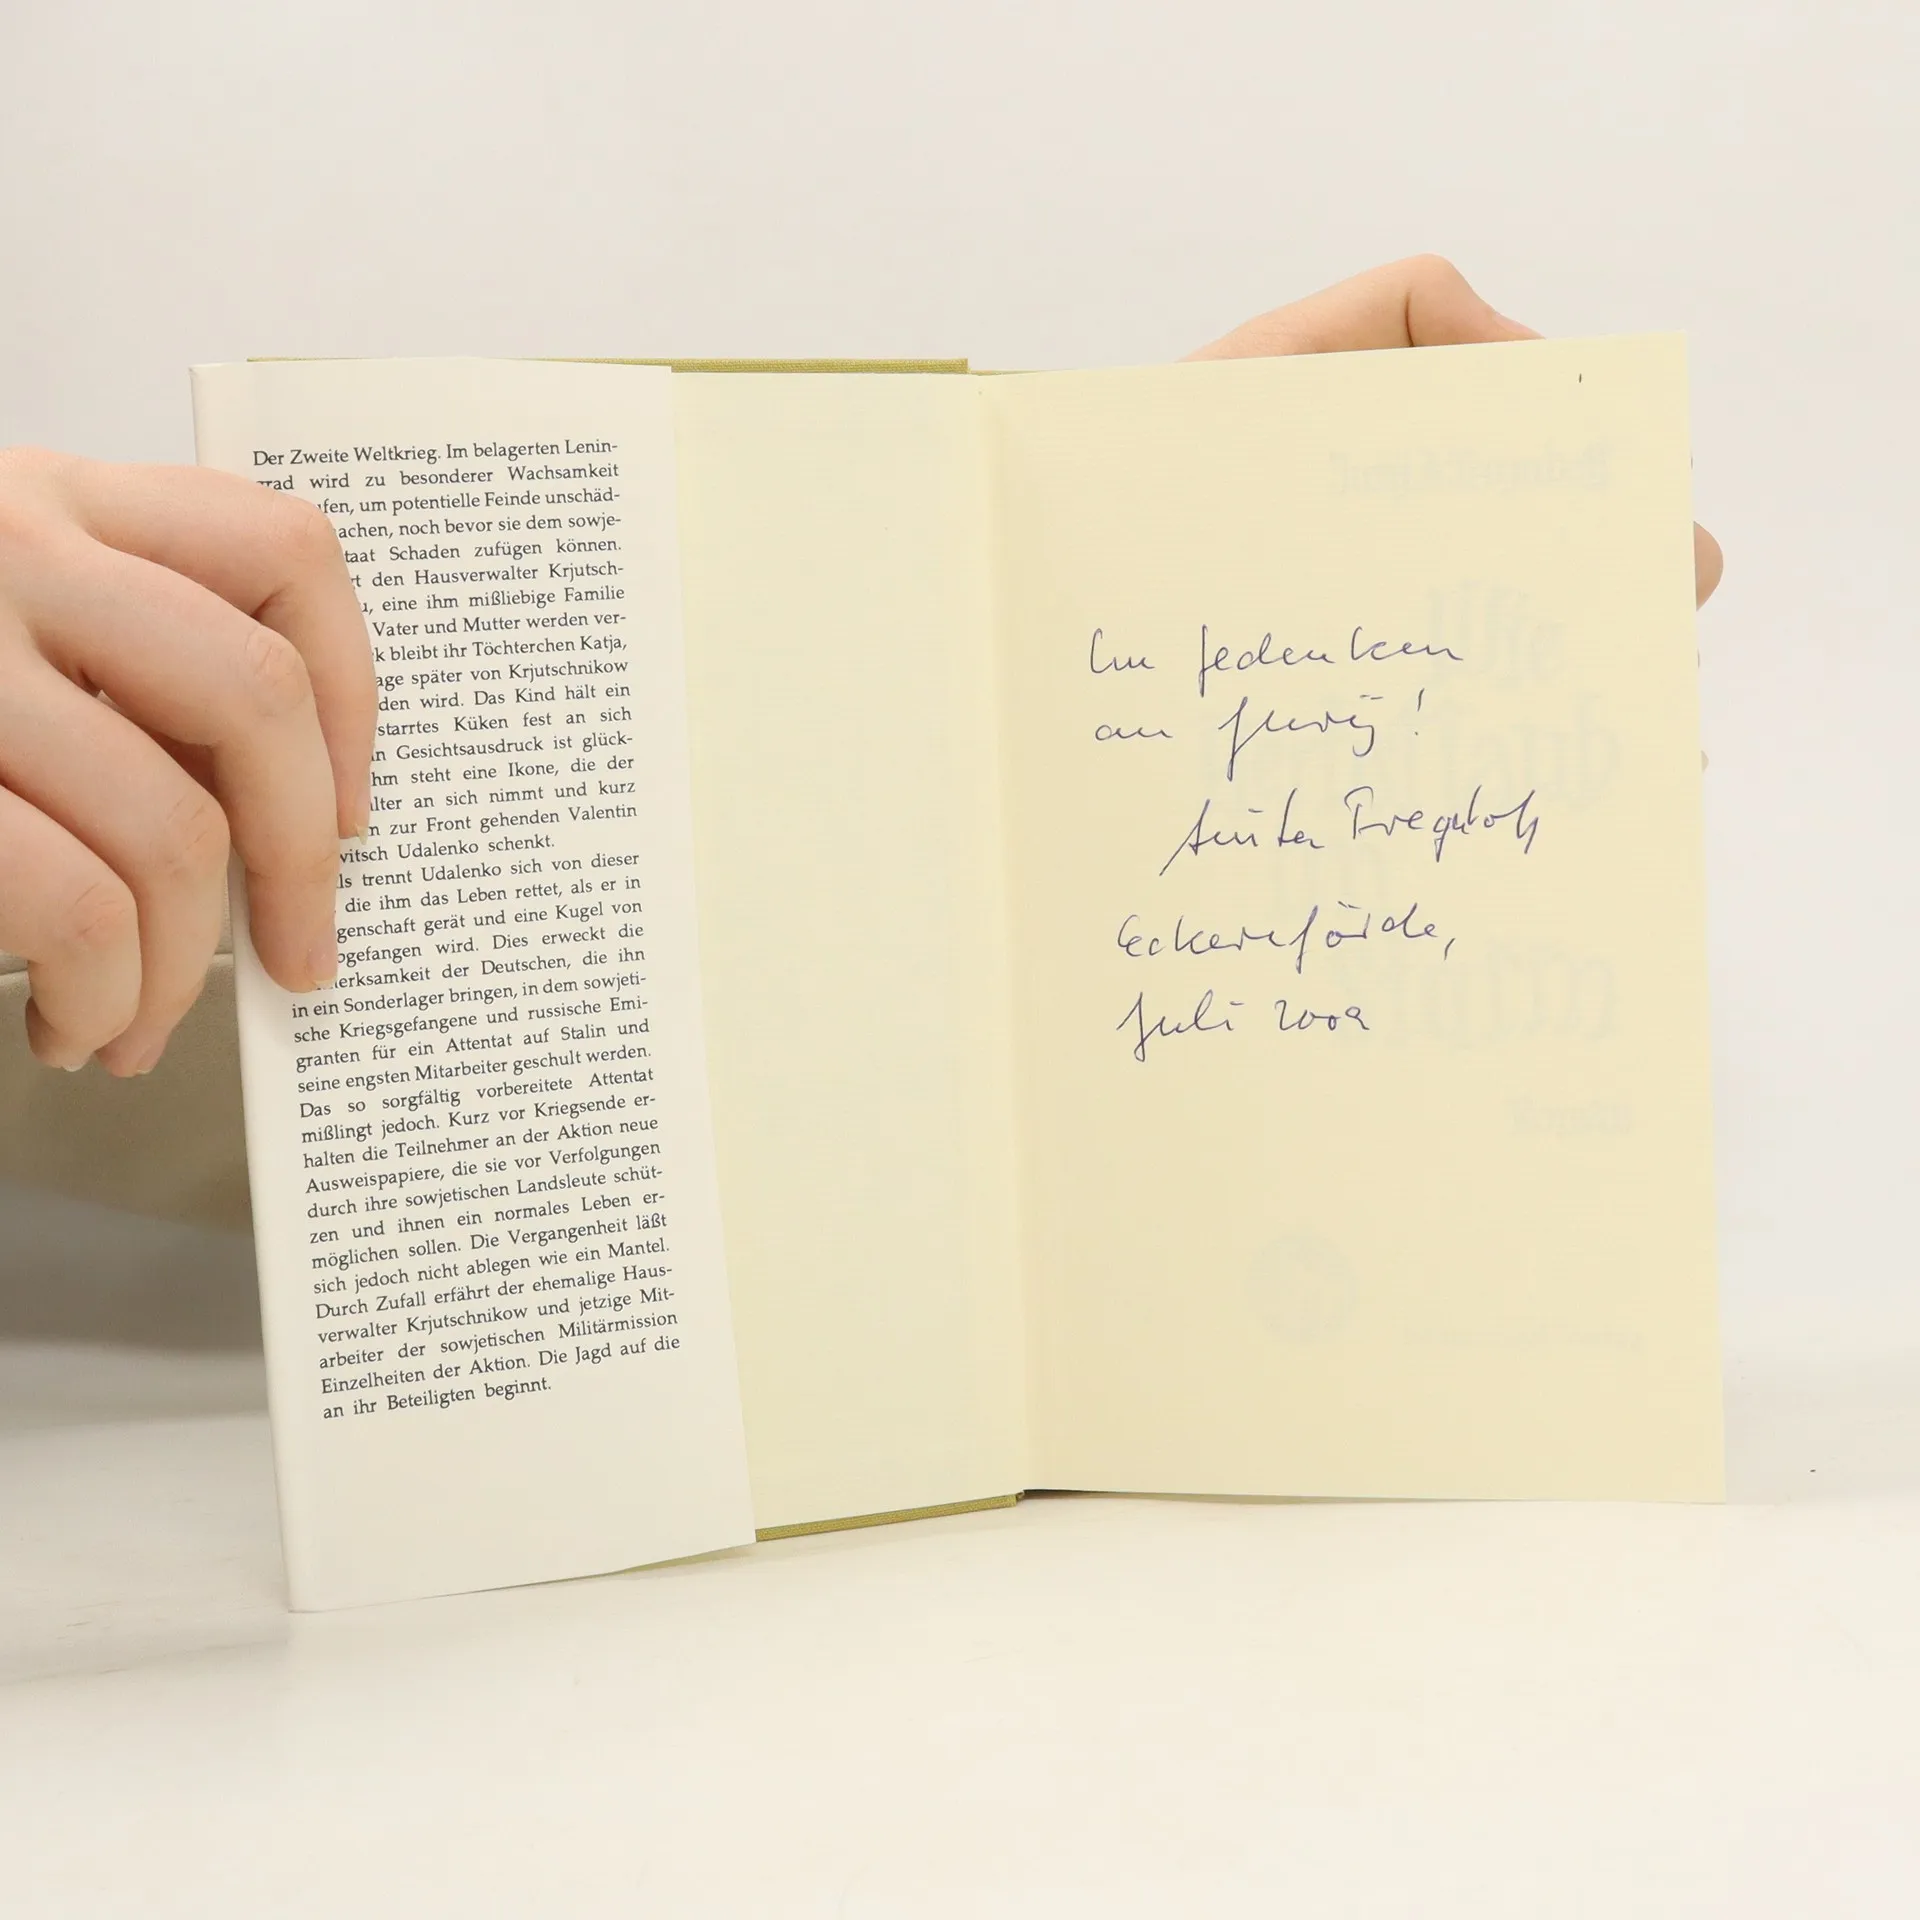 Der Zweite Weltkrieg. Im belagerten Lenin-
grad wird zu besonderer Wachsamkeit
fen, um potentielle Feinde unschäd-
achen, noch bevor sie dem sowje-
taat Schaden zufügen können.
t den Hausverwalter Krjutsch-
u, eine ihm mißliebige Familie
Vater und Mutter werden ver-
k bleibt ihr Töchterchen Katja,
age später von Krjutschnikow
den wird. Das Kind hält ein
starrtes Küken fest an sich
n Gesichtsausdruck ist glück-
hm steht eine Ikone, die der
lter an sich nimmt und kurz
n zur Front gehenden Valentin
witsch Udalenko schenkt.
ls trennt Udalenko sich von dieser
, die ihm das Leben rettet, als er in
genschaft gerät und eine Kugel von
bgefangen wird. Dies erweckt die
merksamkeit der Deutschen, die ihn
in ein Sonderlager bringen, in dem sowjeti-
sche Kriegsgefangene und russische Emi-
granten für ein Attentat auf Stalin und
seine engsten Mitarbeiter geschult werden.
Das so sorgfältig vorbereitete Attentat
mißlingt jedoch. Kurz vor Kriegsende er-
halten die Teilnehmer an der Aktion neue
Ausweispapiere, die sie vor Verfolgungen
durch ihre sowjetischen Landsleute schüt-
zen und ihnen ein normales Leben er-
möglichen sollen. Die Vergangenheit läßt
sich jedoch nicht ablegen wie ein Mantel.
Durch Zufall erfährt der ehemalige Haus-
verwalter Krjutschnikow und jetzige Mit-
arbeiter der sowjetischen Militärmission
Einzelheiten der Aktion. Die Jagd auf die
an ihr Beteiligten beginnt.
Im Gedenken
an Jurij!
Eckernförde,
Juli 2002